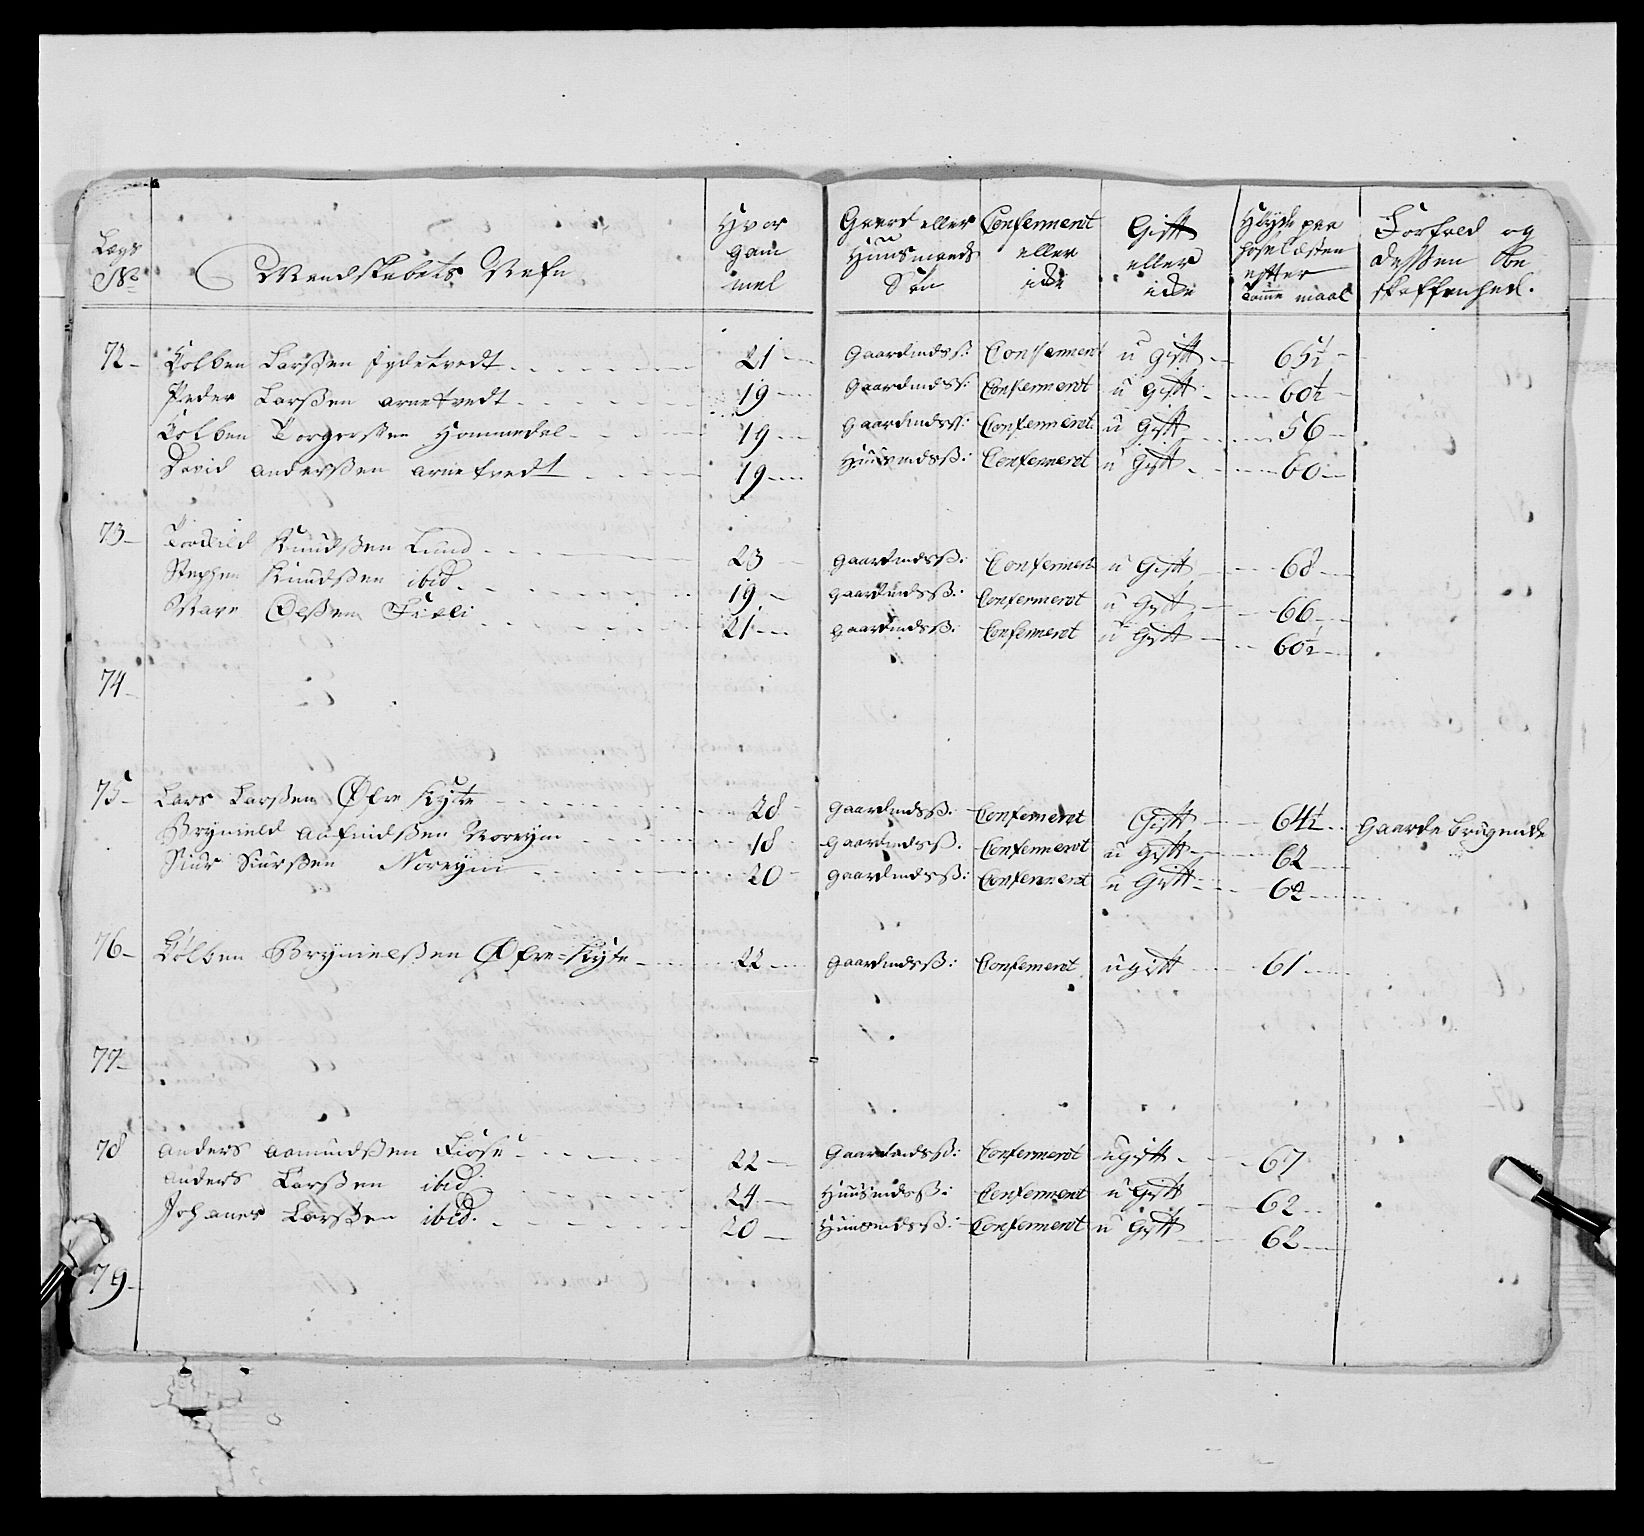 Lægs No | Mandskabets Nafn | Hvor gam mel | Gaard eller Huusmands Søn | Confermert eller icke | Gift eller icke | Høyde paa hoseLæsten efter Tomme maal | Forfald og dessen be skaffenhed.
72 - Kolben Larssen Fydetvedt 21 Gaardmdsß: Confermert u gift 65½
Peder Larssen arnetvedt 19 Gaardmdsß: Confermert u gift 60½
Kolben Torgerssen Hommedal 19 Gaardmdsß: Confermert u Gift 56
David anderssen arnetvedt 19 Huusmdsß: Confermert u Gift 60
73 - Knudssen Lund 23 gaardmdsß: Confermert u Gift 68
Stephen Knudssen ibid 19 gaardmdsß: Confermert u Gift 66
Olssen Fieli 21 gaardmdsß: Confermert u Gift 60½
74 -
75 - Lars Larssen Øfre Kyte 28 gaardmdsß: Confermert Gift 64½ gaardebrugende
Brynield Noreym 18 gaardmdsß: Confermert u Gift 62
Siur Siurssen Noreym 20 gaardmdsß: Confermert u Gift 62
76 - Kolben Brynielssen Øfre-Kyte 22 gaardmdsß: Confermert ugift 61
77 -
78 anders aamundssen Fiose 22 Gaardmdsß: Confermert ugift 67
anders Larssen ibid 24 Huusmdsß: Confermert u Gift 62
Johanes Larssen ibid. 20 Huusmdsß: Confermert u Gift 62
79 -